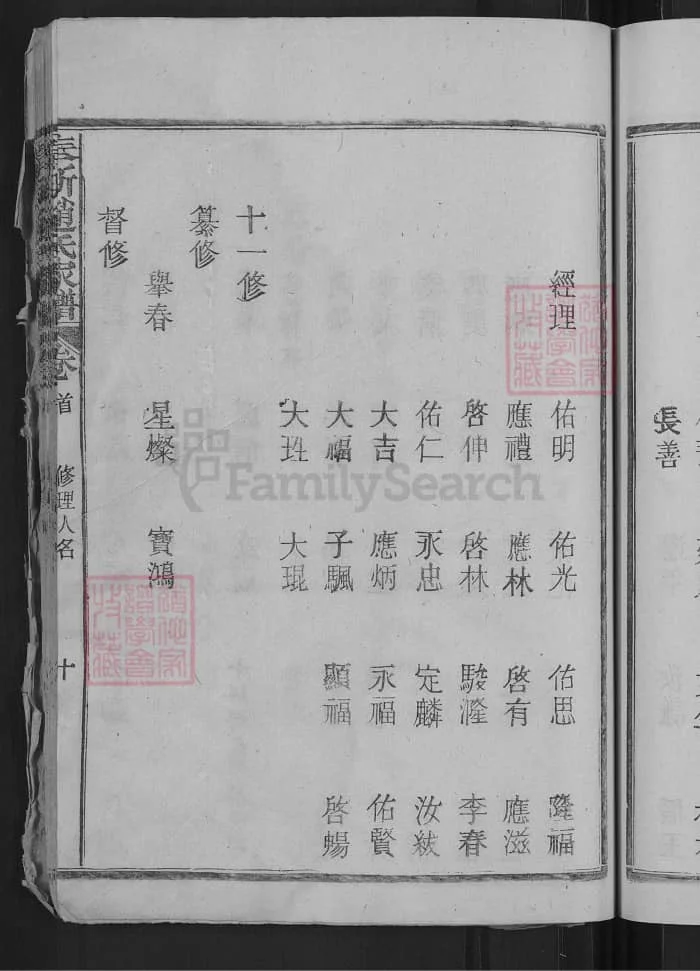 經理
佑明 佑光 佑思 隆福
應禮 應林 啓有 應滋
啓伸 啓林 駿漋 李春
佑仁 永忠 定麟 汝紱
大吉 應炳 永福 佑賢
大福 子颿 顯福 啓暢
大珄 大琨
十一修
纂修
舉春 星燦 寶鴻
督修
趙氏家譜 卷首 修理人名 十
長善
FamilySearch